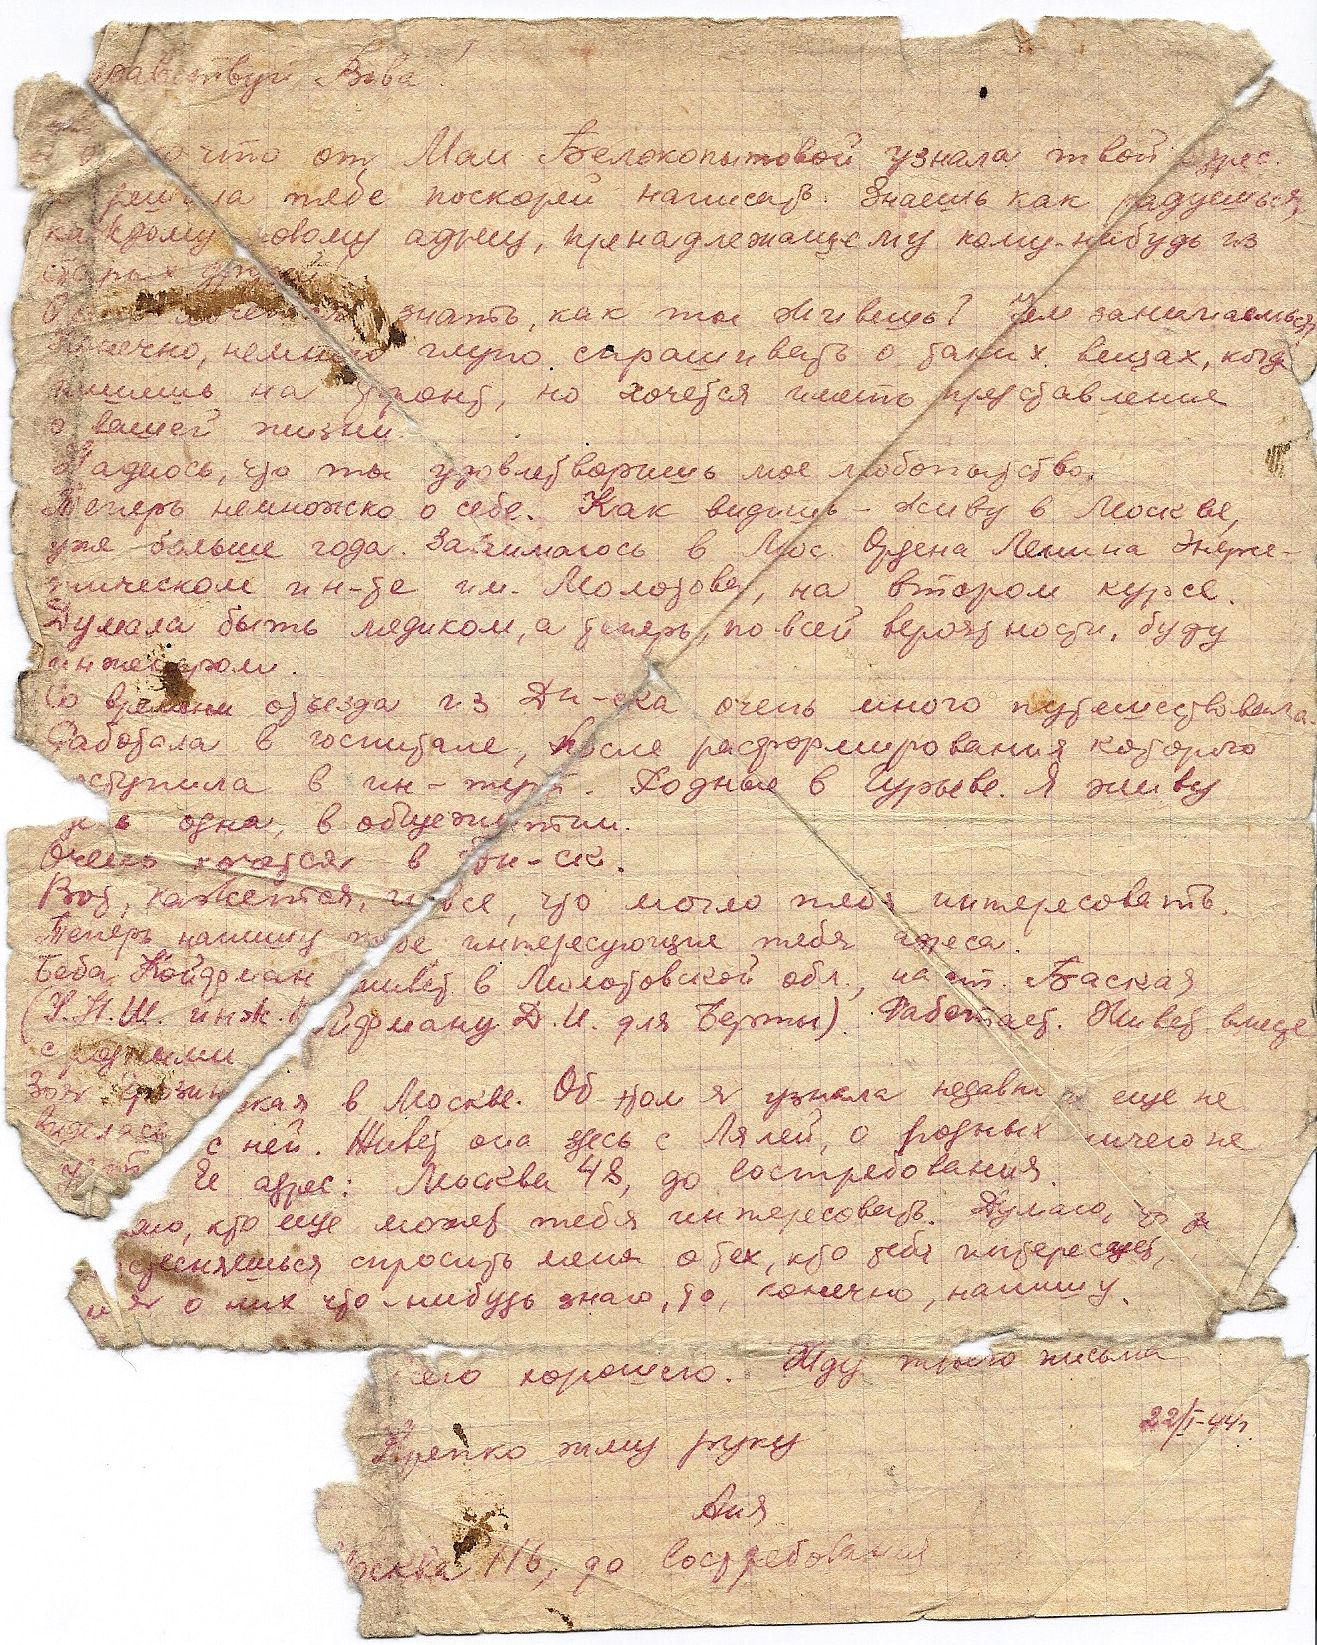 Здравствуй Вова!
что от Маи Белокопытовой узнала твой адрес.
решила тебе поскорей написать. Знаешь как радуешься,
каждому новому адресу, пренадлежащему кому-нибудь из
старых друзей
хочется знать, как ты живешь? Чем занимаешься?
Конечно, немного глупо спрашивать о таких вещах, когда
пишешь на фронт, но хочется иметь представление
о вашей жизни.
Надеюсь, что ты удовлетворишь мое любопытство.
Теперь немножко о себе. Как видишь - живу в Москве,
уже больше года. Занимаюсь в Мос. Ордена Ленина Энерге-
тическом ин-те им. Молотова, на втором курсе.
Думала быть медиком, а теперь, по всей вероятности, буду
инженером.
Со времени отъезда из Дн-ска очень много путешествовала.
Работала в госпитале, после расформирования которого
поступила в ин-тут. Родные в Гурьеве. Я живу
одна, в общежитии.
Очень хочется в Дн-ск.
Вот, кажется, и все, что могло тебя интересовать.
Теперь напишу тебе интересующие тебя адреса.
Беба Койфман живет в Молотовской обл., на ст. Баская
(У.Н.Ш. инж. Койфману Д.И. для Берты). Работает. Живет вместе
с родными
Зоя в Москве. Об этом я узнала недавно и еще не
виделась с ней. Живет она здесь с Лялей, о родных ничего не
Ее адрес: Москва 48, до востребования.
кто еще может тебя интересовать. Думаю, что не
стесняешься спросить меня о тех, кто тебя интересует,
и я о них что-нибудь знаю, то, конечно, напишу.
Всего хорошего. Жду твоего письма
22/I-44г.
Крепко жму руку
Аня
Москва 116, до востребования